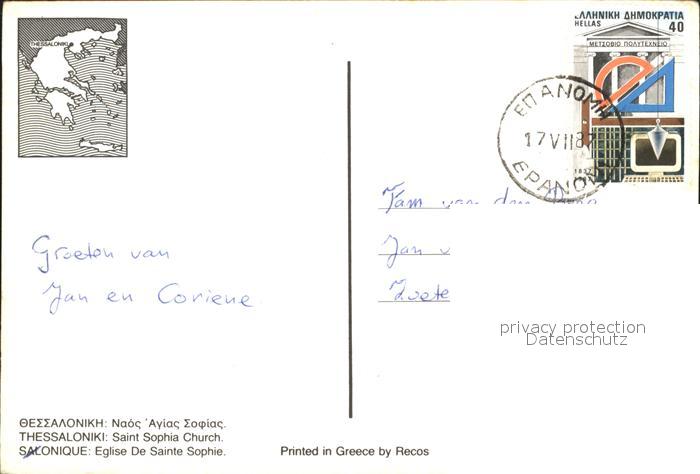 THESSALONIKI
ΕΛΛΗΝΙΚΗ ΔΗΜΟΚΡΑΤΙΑ
HELLAS 40
ΜΕΤΣΟΒΙΟ ΠΟΛΥΤΕΧΝΕΙΟ
ΕΠΑΝΟΜΗ
17 VII 87
EPANOMI
Groeten van
Jan en Coriene
Fam van den
Jan v
Zoete
privacy protection
Datenschutz
ΘΕΣΣΑΛΟΝΙΚΗ: Ναός Ἁγίας Σοφίας.
THESSALONIKI: Saint Sophia Church.
SALONIQUE: Eglise De Sainte Sophie.
Printed in Greece by Recos